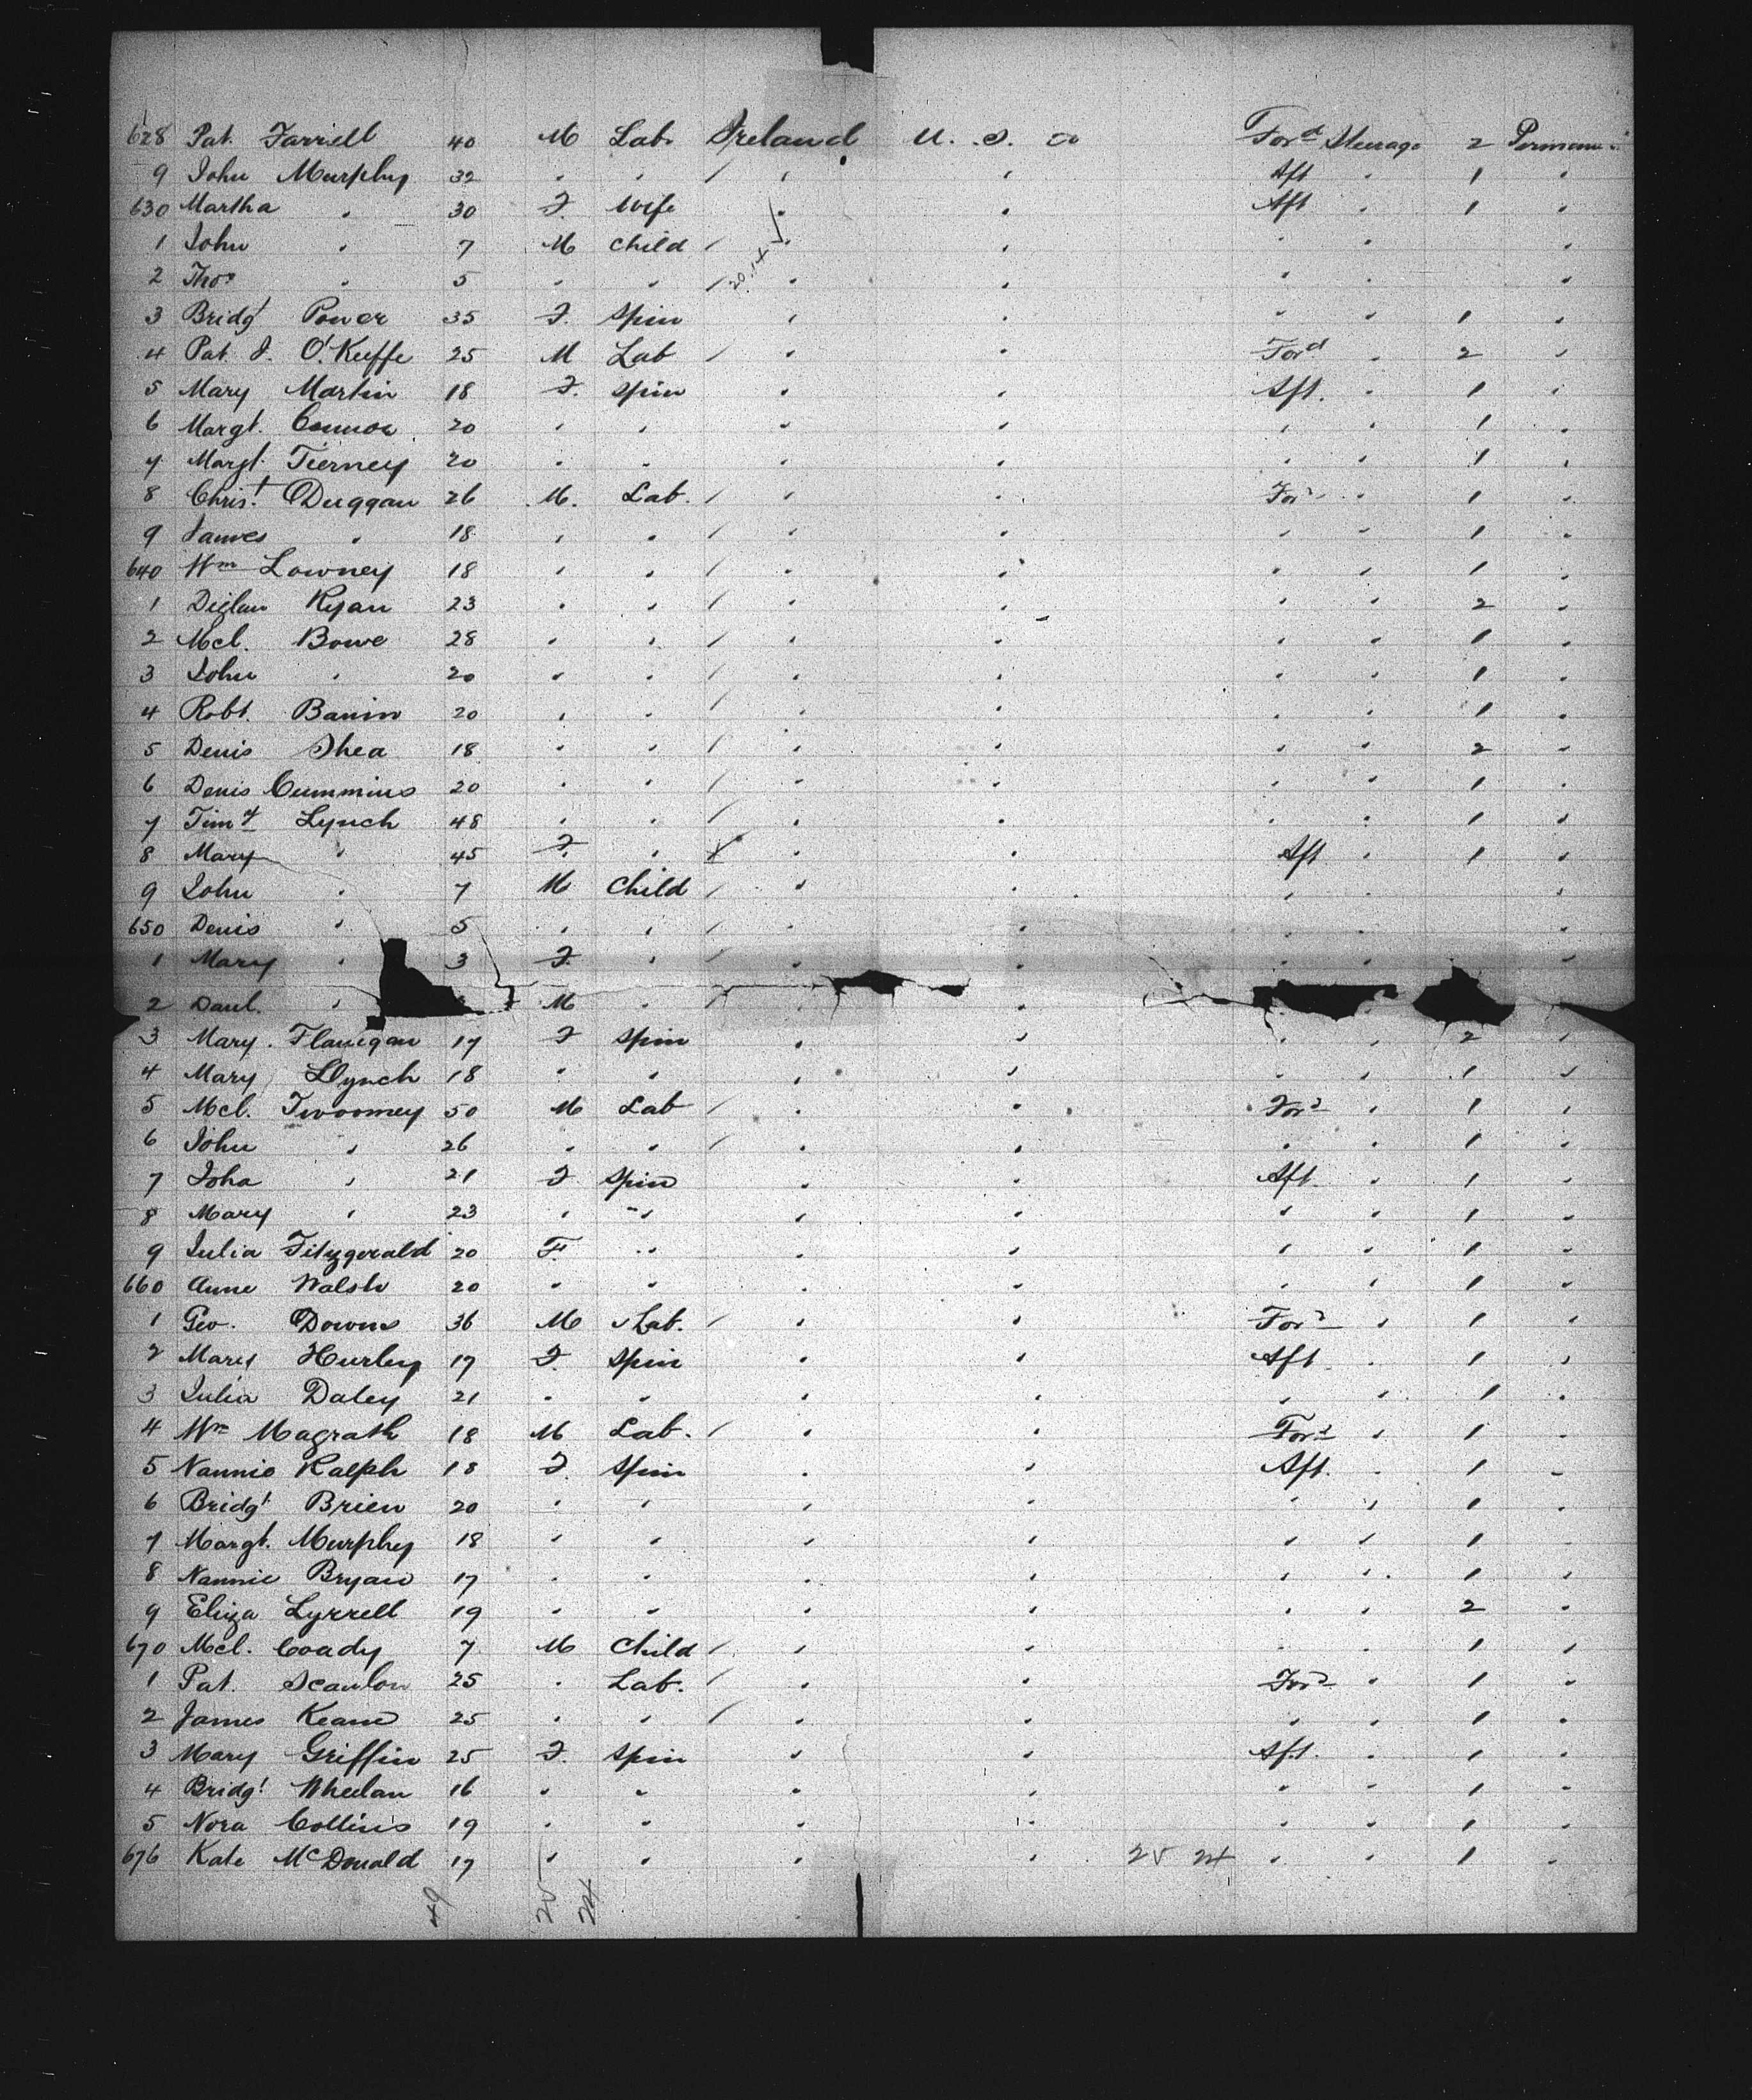 628 Pat. Farrell 40 M Lab. Ireland U. S. a Ford Steerage 2 Permanent
9 John Murphy 32 " " / " " Aft " 1 "
630 Martha " 30 F. Wife " " Aft " 1 "
1 John " 7 M Child / " " " " "
2 Thos " 5 " " / " " " " "
3 Bridgt Power 35 F. Spin " " " " 1 "
4 Pat. J. O'Keeffe 25 M Lab / " " Ford " 2 "
5 Mary Martin 18 F. Spin " " Aft. " 1 "
6 Margt. Connor 20 " " " " " " 1 "
7 Margt. Tierney 20 " " " " " " 1 "
8 Christ. Duggan 26 M. Lab. / " " Ford " 1 "
9 James " 18 " " / " " " " 1 "
640 Wm Lowney 18 " " / " " " " 1 "
1 Diglan Ryan 23 " " / " " " " 2 "
2 Mcl. Bowe 28 " " / " " " " 1 "
3 John " 20 " " / " " " " 1 "
4 Robt. Banin 20 " " / " " " " 1 "
5 Denis Shea 18 " " / " " " " 2 "
6 Denis Cummins 20 " " / " " " " 1 "
7 Timy Lynch 48 " " / " " " " 1 "
8 Mary " 45 F. " " " Aft " 1 "
9 John " 7 M Child / " " " "
650 Denis " 5 " " / " " " " "
1 Mary " 3 F. " " " " " "
2 Danl. " M " / "
3 Mary Flanigan 17 F Spin " " " " 2 "
4 Mary Lynch 18 " " " " " " 1 "
5 Mcl. Twoomey 50 M Lab / " " Ford " 1 "
6 John " 26 " " / " " " " 1 "
7 Joha " 21 F Spin " " Aft. " 1 "
8 Mary " 23 " " " " " " 1 "
9 Julia Fitzgerald 20 F. " " " " " 1 "
660 Anne Walsh 20 " " " " " " 1 "
1 Geo. Downs 36 M Lab. / " " Ford " 1 "
2 Mary Hurley 17 F. Spin " " Aft " 1 "
3 Julia Daley 21 " " " " " " 1 "
4 Wm Magrath 18 M Lab. / " " Ford " 1 "
5 Nannie Ralph 18 F. Spin " " Aft. " 1 "
6 Bridgt Brien 20 " " " " " " 1 "
7 Margt. Murphy 18 " " " " " " 1 "
8 Nannie Bryan 17 " " " " " " 1 "
9 Eliza Lyrrell 19 " " " " " " 2 "
670 Mcl. Coady 7 M Child / " " " " 1 "
1 Pat. Scanlon 25 " Lab. / " " Ford " 1 "
2 James Keane 25 " " / " " " " 1 "
3 Mary Griffin 25 F. Spin " " Aft. " 1 "
4 Bridgt Wheelan 16 " " " " " " 1 "
5 Nora Collins 19 " " " " " " 1 "
676 Kate McDonald 17 " " " " 25 24 " " 1 "
49 25 24